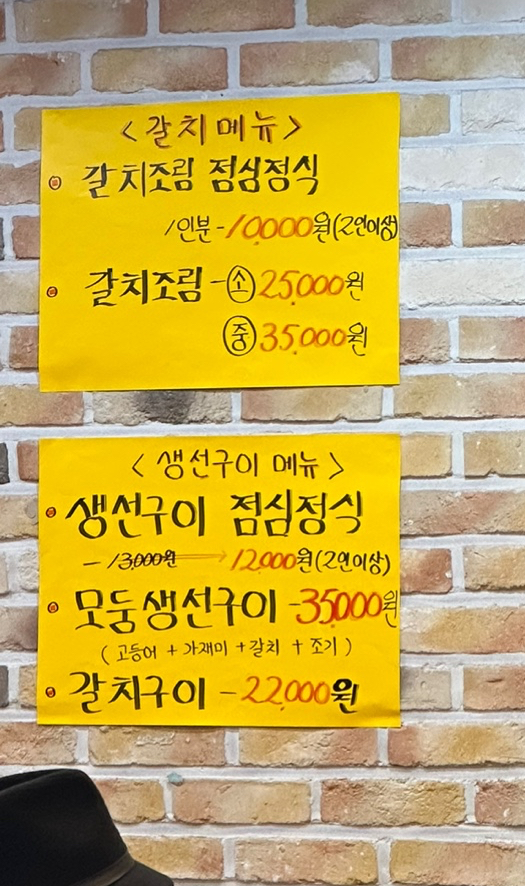 <갈치메뉴>
갈치조림 점심정식
1인분-10,000원(2인이상)
갈치조림-㊛25,000원
㊥35,000원
<생선구이 메뉴>
생선구이 점심정식
- 13,000원 → 12,000원(2인이상)
모둠생선구이-35,000원
(고등어+가재미+갈치+조기)
갈치구이-22,000원